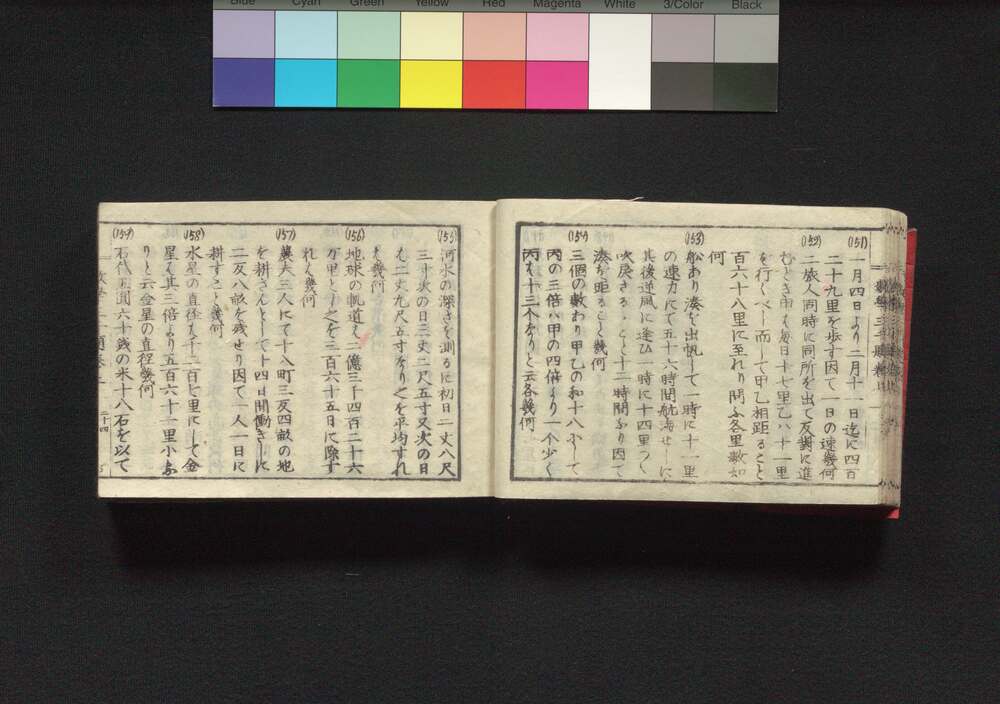 Blue Cyan Green Yellow Red Magenta White 3/Color Black
(151)
一月四日より二月十一日迄に四百
二十九里を歩す因て一日の速幾何
(152)
二旅人同時に同所を出て反對に進
むとき甲は毎日十七里乙八十一里
を行くべし而して甲乙相距ること
百六十八里に至れり問ふ各里數如
何
(153)
船あり湊を出帆して一時に十一里
の速力にて五十六時間航海せしに
其後逆風に逢ひ一時に十四里づゝ
吹戻さるゝこと十二時間なり因て
湊を距ること幾何
(154)
三個の數あり甲乙の和十八にして
丙の三倍ハ甲の四倍より一個少く
丙は十三个なりと云各幾何
(155)
河水の深さを測るに初日二丈八尺
三寸次の日三丈二尺五寸又次の日
は二丈九尺五寸なり之を平均すれ
ば幾何
(156)
地球の軌道は二億三千四百二十六
万里とし之を三百六十五日に除す
れば幾何
(157)
農夫三人にて十八町三反四畝の地
を耕さんとして十四日間働きしに
二反八畝を残せり因て一人一日に
耕すこと幾何
(158)
水星の直径は千二百七里にして金
星は其三倍より五百六十一里小な
りと云金星の直径幾何
(159)
石代五圓六十錢の米十八石を以て
二十四